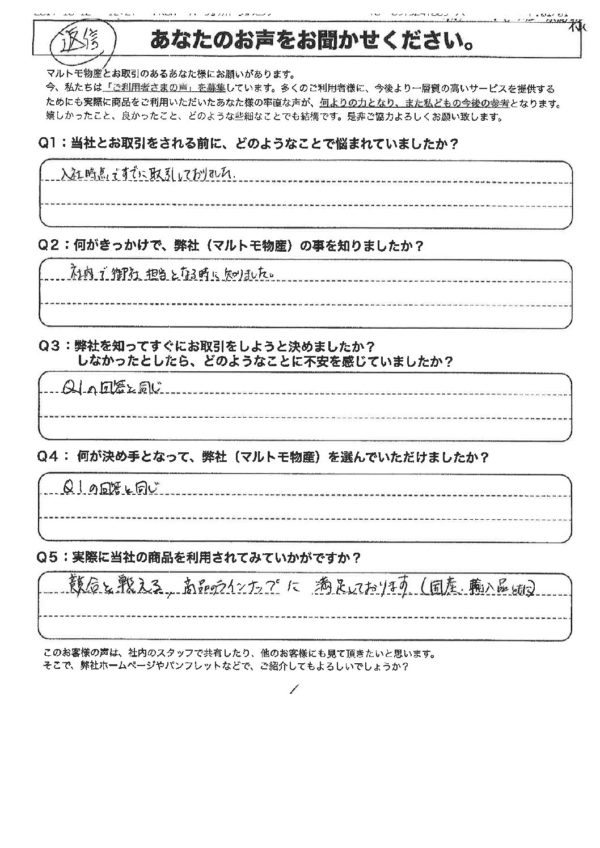 返信
あなたのお声をお聞かせください。
マルトモ物産とお取引のあるあなた様にお願いがあります。
今、私たちは「ご利用者さまの声」を募集しています。多くのご利用者様に、今後より一層質の高いサービスを提供する
ためにも実際に商品をご利用いただいたあなた様の率直な声が、何よりの力となり、また私どもの今後の参考となります。
嬉しかったこと、良かったこと、どのような些細なことでも結構です。是非ご協力よろしくお願い致します。
Q1：当社とお取引をされる前に、どのようなことで悩まれていましたか？
入社時点ですでに取引しておりました。
Q2：何がきっかけで、弊社（マルトモ物産）の事を知りましたか？
社内で御社担当となる時に知りました。
Q3：弊社を知ってすぐにお取引をしようと決めましたか？
しなかったとしたら、どのようなことに不安を感じていましたか？
Q1の回答と同じ
Q4：何が決め手となって、弊社（マルトモ物産）を選んでいただけましたか？
Q1の回答と同じ
Q5：実際に当社の商品を利用されてみていかがですか？
競合と戦える、商品のラインナップに満足しております（国産・輸入品ともに）
このお客様の声は、社内のスタッフで共有したり、他のお客様にも見て頂きたいと思います。
そこで、弊社ホームページやパンフレットなどで、ご紹介してもよろしいでしょうか？